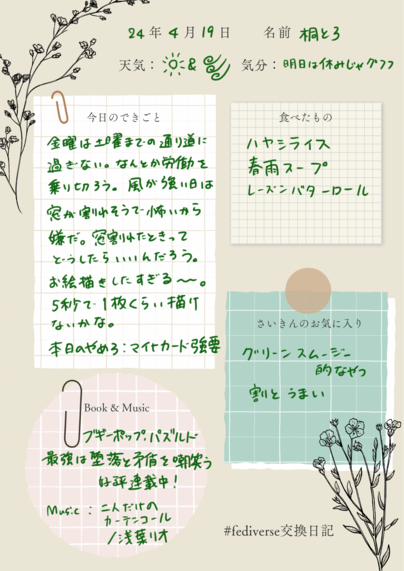 24年 4月 19日 名前 桐とろ
天気：&
気分：明日は休みじゃグフフ
今日のできごと
金曜は土曜までの通り道に
過ぎない。なんとか労働を
乗り切ろう。風が強い日は
窓が割れそうで怖いから
嫌だ。窓割れたときって
どうしたらいいんだろう。
お絵描きしたすぎる〜。
5秒で1枚くらい描け
ないかな。
本日のやめろ：マイナカード強要
食べたもの
ハヤシライス
春雨スープ
レーズンバターロール
さいきんのお気に入り
グリーンスムージー
的なやつ
割とうまい
Book & Music
ブギーポップ パズルド
最強は堕落と矛盾を嘲笑う
好評連載中！
Music：二人だけの
カーテンコール
/浅葉リオ
#fediverse交換日記